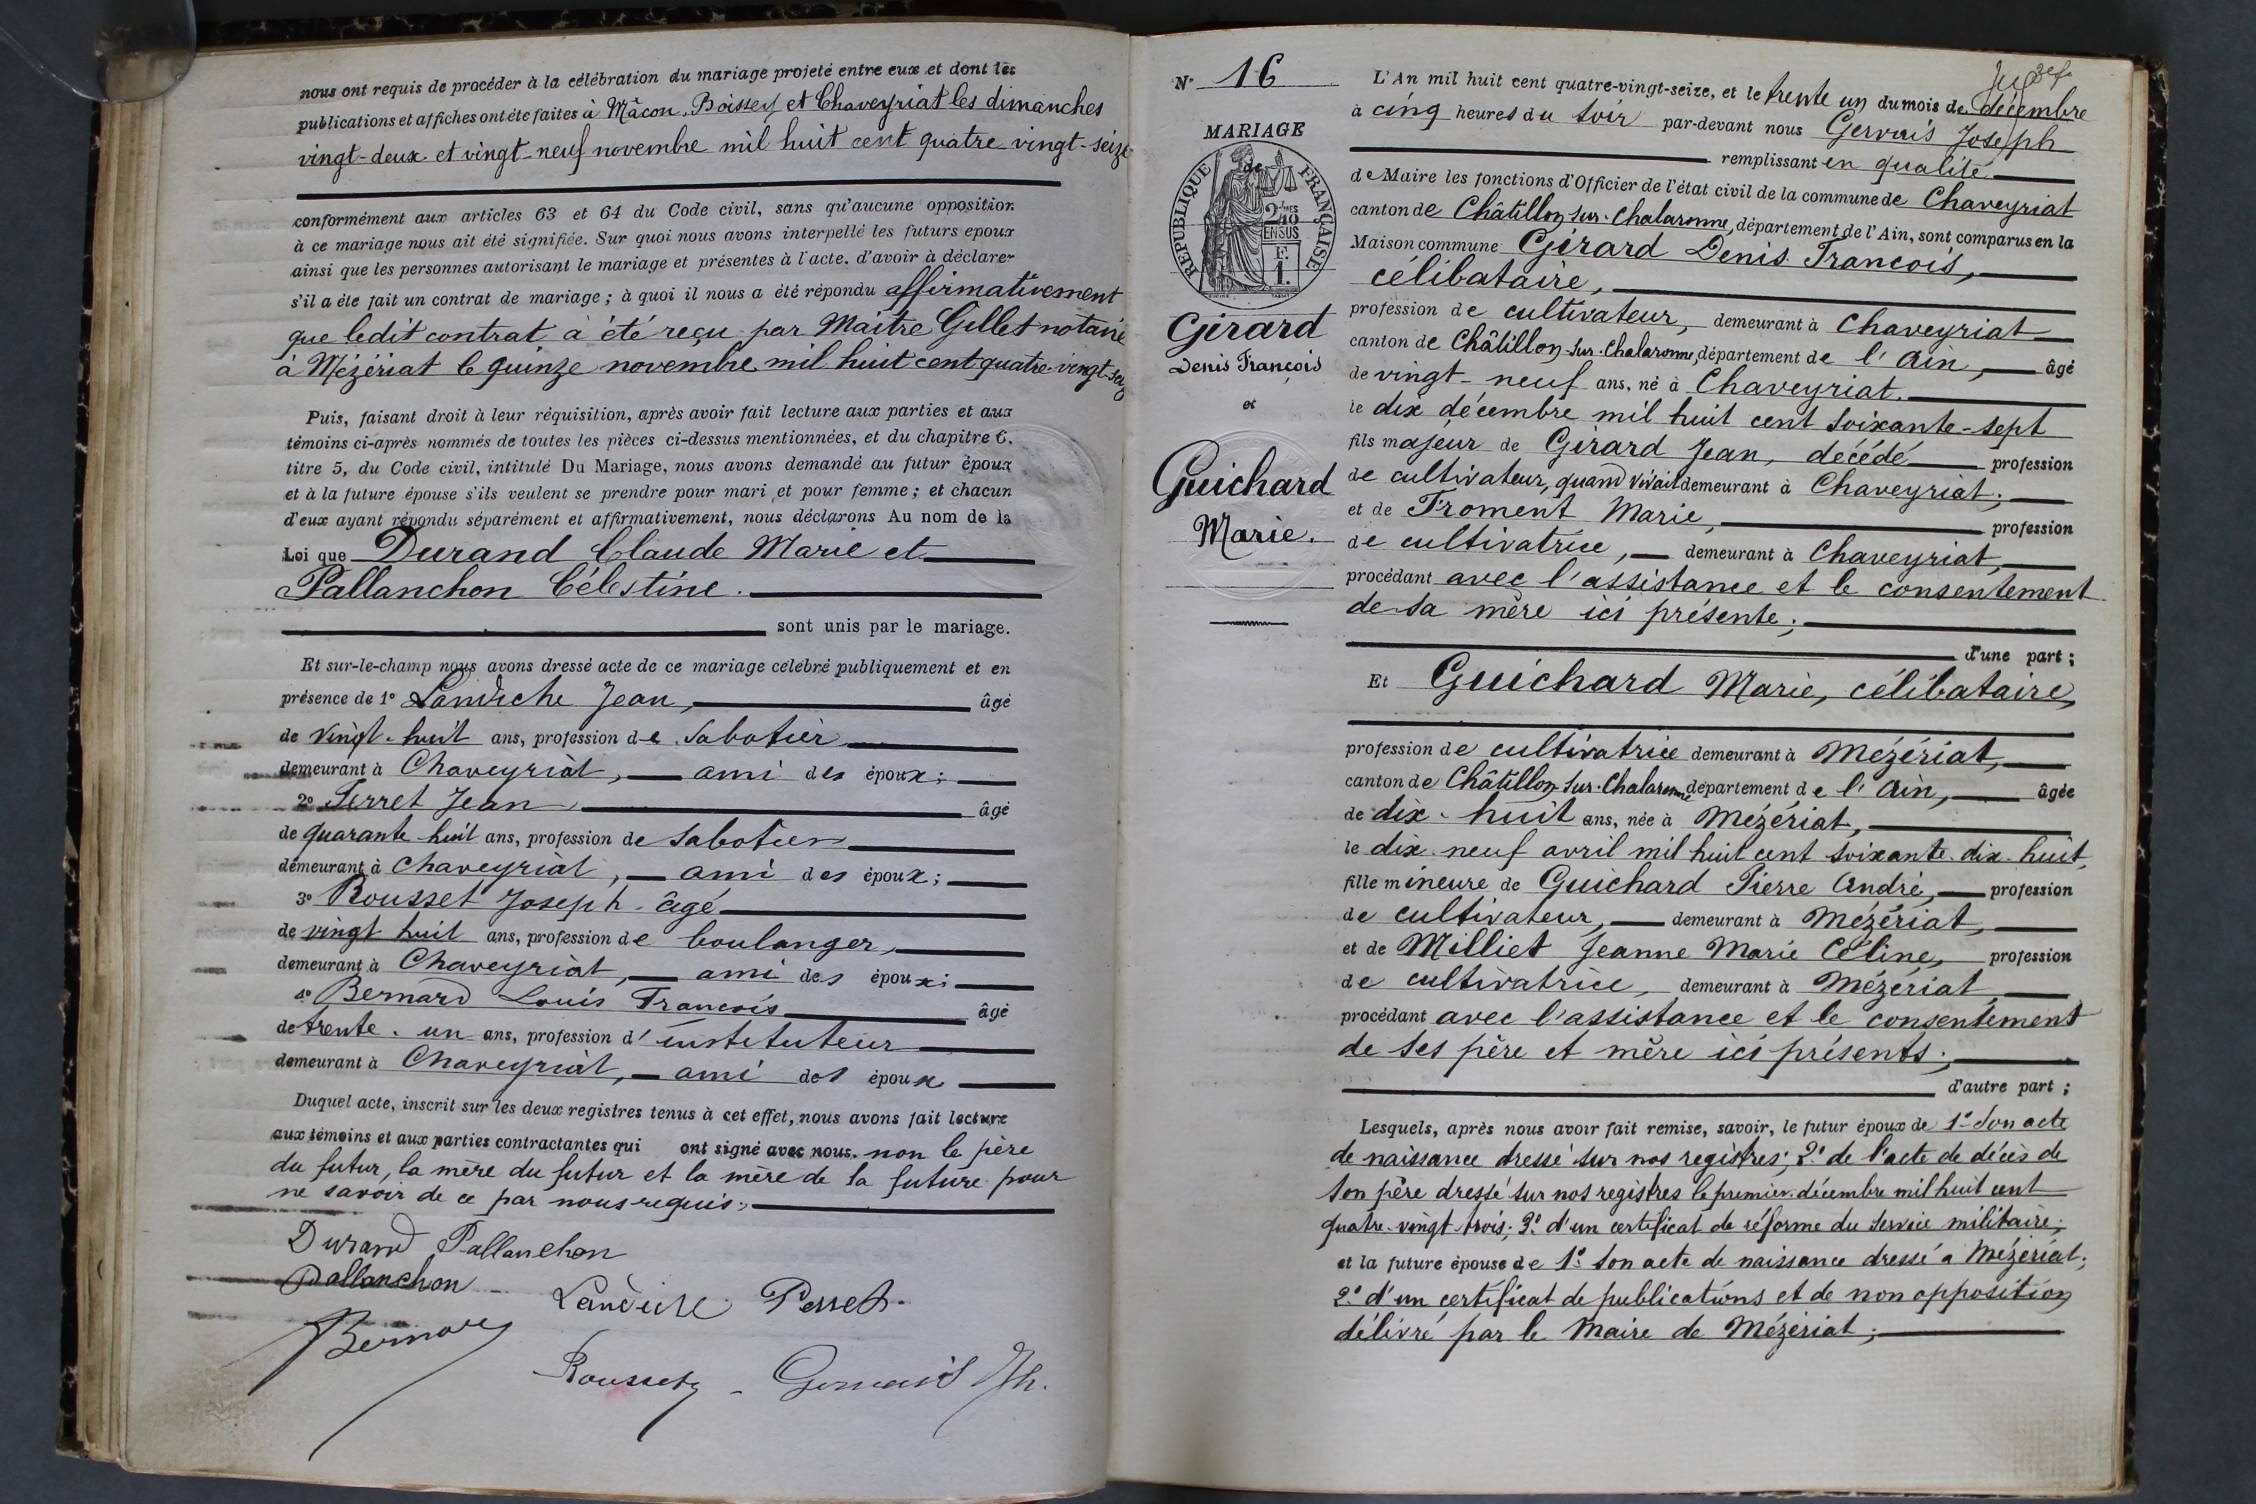 nous ont requis de procéder à la célébration du mariage projeté entre eux et dont les
publications et affiches ont été faites à Mâcon, Boissey et Chaveyriat les dimanches
vingt-deux et vingt-neuf novembre mil huit cent quatre vingt-seize
conformément aux articles 63 et 64 du Code civil, sans qu'aucune opposition
à ce mariage nous ait été signifiée. Sur quoi nous avons interpellé les futurs epoux
ainsi que les personnes autorisant le mariage et présentes à l'acte, d'avoir à déclarer
s'il a été fait un contrat de mariage ; à quoi il nous a été répondu affirmativement
que ledit contrat a été reçu par Maître Gillet notaire
à Mézériat le quinze novembre mil huit cent quatre-vingt-seize
Puis, faisant droit à leur réquisition, après avoir fait lecture aux parties et aux
témoins ci-après nommés de toutes les pièces ci-dessus mentionnées, et du chapitre 6,
titre 5, du Code civil, intitulé Du Mariage, nous avons demandé au futur époux
et à la future épouse s'ils veulent se prendre pour mari et pour femme ; et chacun
d'eux ayant répondu séparément et affirmativement, nous déclarons Au nom de la
Loi que Durand Claude Marie et
Pallanchon Célestine.
sont unis par le mariage.
Et sur-le-champ nous avons dressé acte de ce mariage célébré publiquement et en
présence de 1° Landèche Jean, âgé
de vingt-huit ans, profession de sabotier
demeurant à Chaveyriat, ami des époux ;
2° Perret Jean, âgé
de quarante-huit ans, profession de sabotier
demeurant à Chaveyriat, ami des époux ;
3° Rousset Joseph âgé
de vingt huit ans, profession de boulanger,
demeurant à Chaveyriat, ami des époux ;
4° Bernard Louis François âgé
de trente-un ans, profession d'instituteur
demeurant à Chaveyriat, ami des époux
Duquel acte, inscrit sur les deux registres tenus à cet effet, nous avons fait lecture
aux témoins et aux parties contractantes qui ont signé avec nous, non le père
du futur, la mère du futur et la mère de la future pour
ne savoir de ce par nous requis.
Durand Pallanchon
Pallanchon Landèche Perret
Bernard
Rousset Gervais Jh.
N° 16
MARIAGE
RÉPUBLIQUE FRANÇAISE
2 10mes
EN SUS
F.
1.
Girard
Denis François
et
Guichard
Marie.
L'An mil huit cent quatre-vingt-seize, et le trente un du mois de décembre
à cinq heures du soir par-devant nous Gervais Joseph
remplissant en qualité
de Maire les fonctions d'Officier de l'état civil de la commune de Chaveyriat
canton de Châtillon-sur-Chalaronne, département de l'Ain, sont comparus en la
Maison commune Girard Denis François,
célibataire,
profession de cultivateur, demeurant à Chaveyriat
canton de Châtillon-sur-Chalaronne, département de l'Ain, âgé
de vingt-neuf ans, né à Chaveyriat.
le dix décembre mil huit cent soixante-sept
fils majeur de Girard Jean, décédé profession
de cultivateur, quand vivait demeurant à Chaveyriat;
et de Froment Marie, profession
de cultivatrice, demeurant à Chaveyriat,
procédant avec l'assistance et le consentement
de sa mère ici présente;
d'une part ;
Et Guichard Marie, célibataire,
profession de cultivatrice demeurant à Mézériat,
canton de Châtillon-sur-Chalaronne département de l'Ain, âgée
de dix-huit ans, née à Mézériat,
le dix-neuf avril mil huit cent soixante-dix-huit,
fille mineure de Guichard Pierre André, profession
de cultivateur, demeurant à Mézériat,
et de Milliet Jeanne Marie Céline, profession
de cultivatrice, demeurant à Mézériat,
procédant avec l'assistance et le consentement
de ses père et mère ici présents;
d'autre part ;
Lesquels, après nous avoir fait remise, savoir, le futur époux de 1° Son acte
de naissance dressé sur nos registres; 2° de l'acte de décès de
son père dressé sur nos registres le premier décembre mil huit cent
quatre-vingt-trois; 3° d'un certificat de réforme du service militaire;
et la future épouse de 1° Son acte de naissance dressé à Mézériat;
2° d'un certificat de publications et de non opposition
délivré par le Maire de Mézériat;